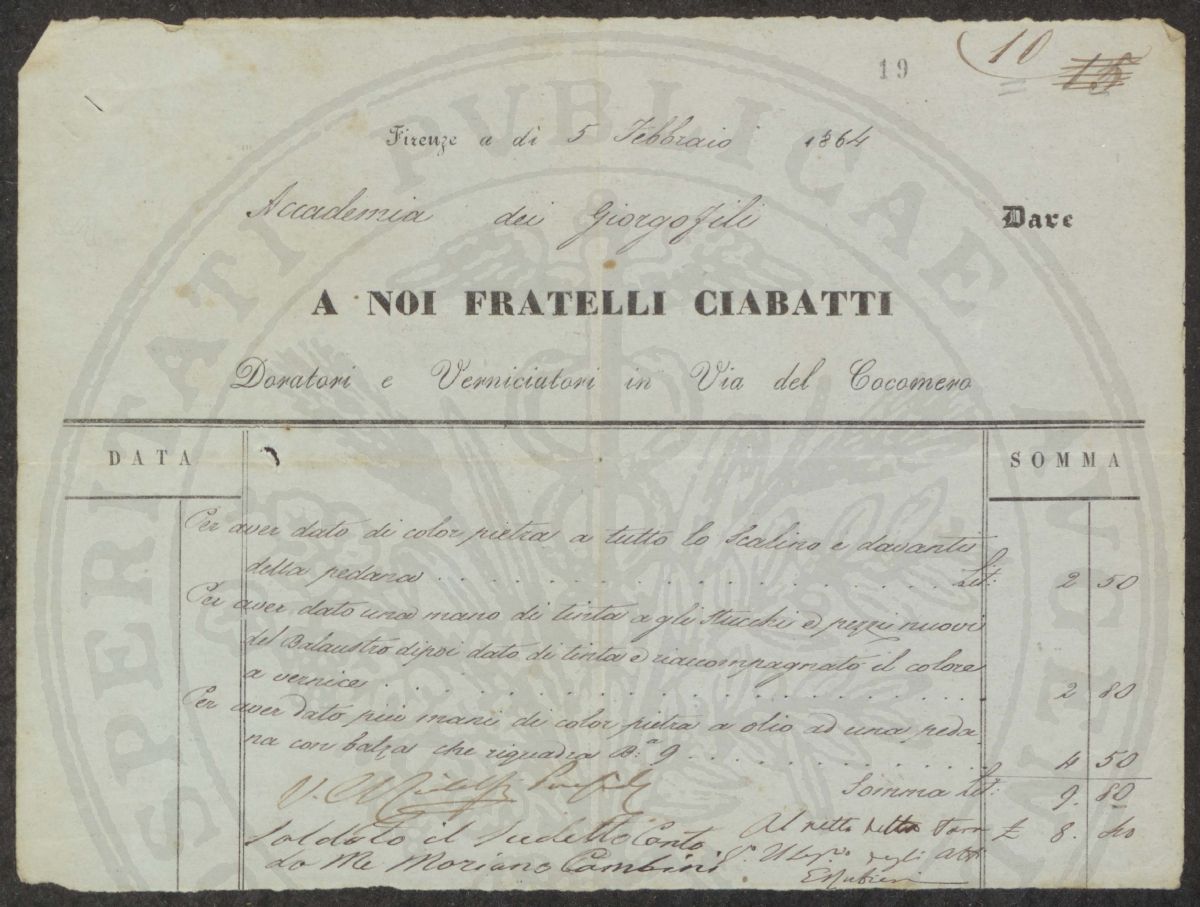 19
10
15
Firenze a dì 5 Febbraio 1864
Accademia dei Giorgofili Dare
A NOI FRATELLI CIABATTI
Doratori e Verniciatori in Via del Cocomero
DATA SOMMA
Per aver dato di color pietra a tutto lo Scalino e davanti
della pedana . . . . . . . . . . . . . . . Lit: 2 50
Per aver dato una mano di tinta agli Stucchi e pezzi nuovi
del Balaustro dipoi dato di tinta e riaccompagnato il colore
a vernice . . . . . . . . . . . . . . . 2 80
Per aver dato più mani di color pietra a olio ad una peda
na con balza che riguadra B:a 9 . . . . . . . . . . 4 50
Somma Lit: 9. 80
Ridolfi
Saldato il Sudetto Conto
da Me Moriano Cambini
Al netto £ 8. 40
degli Atti
ERubieri
PROSPERITATI PUBLICAE AUGENDAE